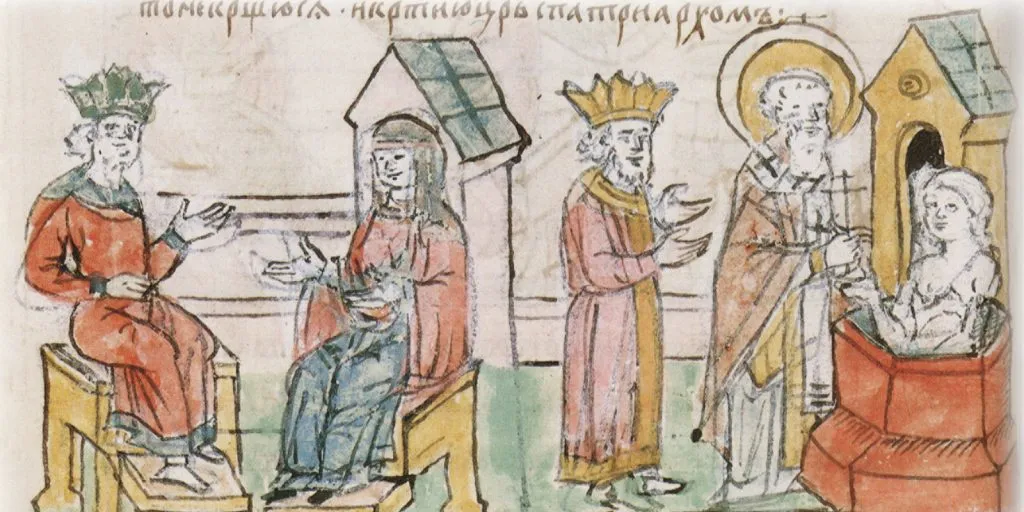 то не крщюсѧ · и крти ю црь с патриархомъ :